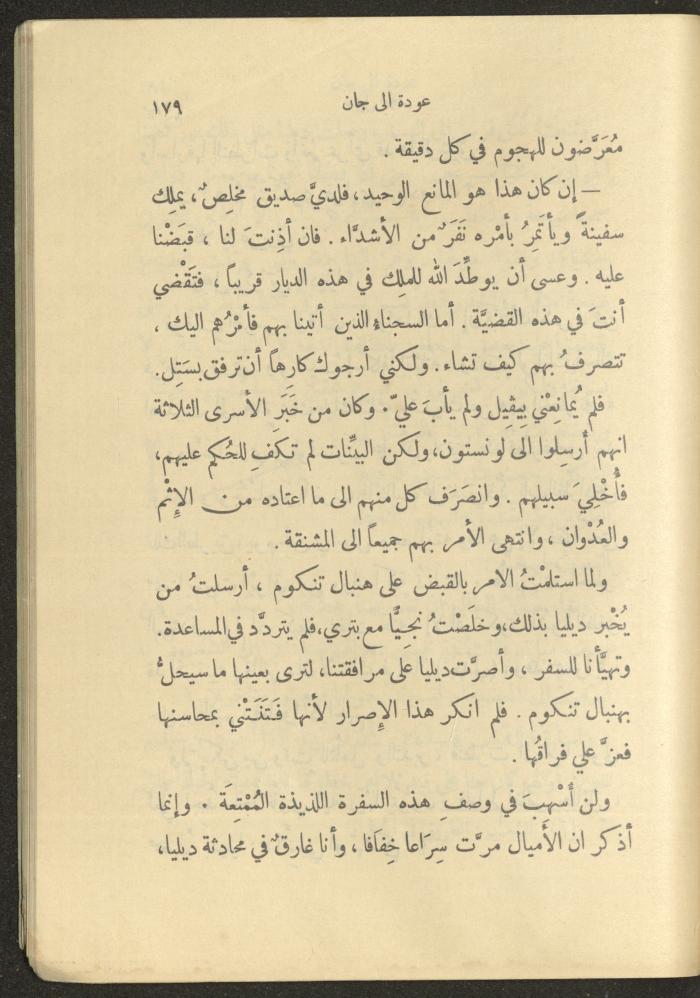 عودة الى جان ١٧٩
مُعَرَّضون للهجوم في كل دقيقة .
— إن كان هذا هو المانع الوحيد، فلديَّ صديق مخلِصٌ، يملِك
سفينةً ويأتَمِرُ بأمْره نَفَرٌ من الأشدَّاء . فان أذِنتَ لنا ، قبَضْنا
عليه . وعسى أن يوطِّدَ الله للملِك في هذه الديار قريباً ، فتَقْضي
أنتَ في هذه القضيَّة . أما السجناء الذين أتينا بهم فأمْرُهم اليك ،
تتصرفُ بهم كيف تشاء . ولكني أرجوك كارهاً أن ترفق بسَتِل.
فلم يُمانِعْني بِيڤِيل ولم يأبَ عليّ . وكان من خَبَرِ الأسرى الثلاثة
انهم أُرسِلوا الى لونستون، ولكن البيِّنات لم تكفِ للحُكم عليهم،
فأُخْلِيَ سبيلهم . وانصَرَف كل منهم الى ما اعتاده من الإِثْم
والعُدْوان ، وانتهى الأمر بهم جميعاً الى المشنقة .
ولما استلمْتُ الامر بالقبض على هنبال تنكوم ، أرسلتُ من
يُخْبر ديليا بذلك، وخلَصْتُ نجيًّا مع بتري، فلم يتردَّد في المساعدة.
وتهيَّأنا للسفر ، وأصرَّت ديليا على مرافقتنا، لترى بعينها ما سيحلُّ
بهنبال تنكوم . فلم انكر هذا الإِصرار لأنها فَتَنَتْني بمحاسنها
فعزَّ علي فراقُها .
ولن أُسْهِبَ في وصفِ هذه السفرة اللذيذة المُمْتِعَة . وإنما
أذكر ان الأَميال مرَّت سِرَاعا خِفَافا ، وأنا غارقٌ في محادثة ديليا،